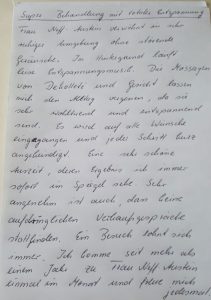 Super Behandlung mit totaler Entspannung
Frau Neff Austein verwöhnt in sehr
ruhiger Umgebung ohne störende
Geräusche. Im Hintergrund läuft
leise Entspannungsmusik. Die Massagen
von Dekolleté und Gesicht lassen
mich den Alltag vergessen, da sie
sehr wohltuend und entspannend
sind. Es wird auf alle Wünsche
eingegangen und jeder Schritt kurz
angekündigt. Eine sehr schöne
Auszeit, deren Ergebnis ich immer
sofort im Spiegel sehe. Sehr
angenehm ist auch, dass keine
aufdringlichen Verkaufsgespräche
stattfinden. Ein Besuch lohnt sich
immer. Ich komme seit mehr als
einem Jahr zu Frau Neff Austein
einmal im Monat und freue mich
jedesmal.